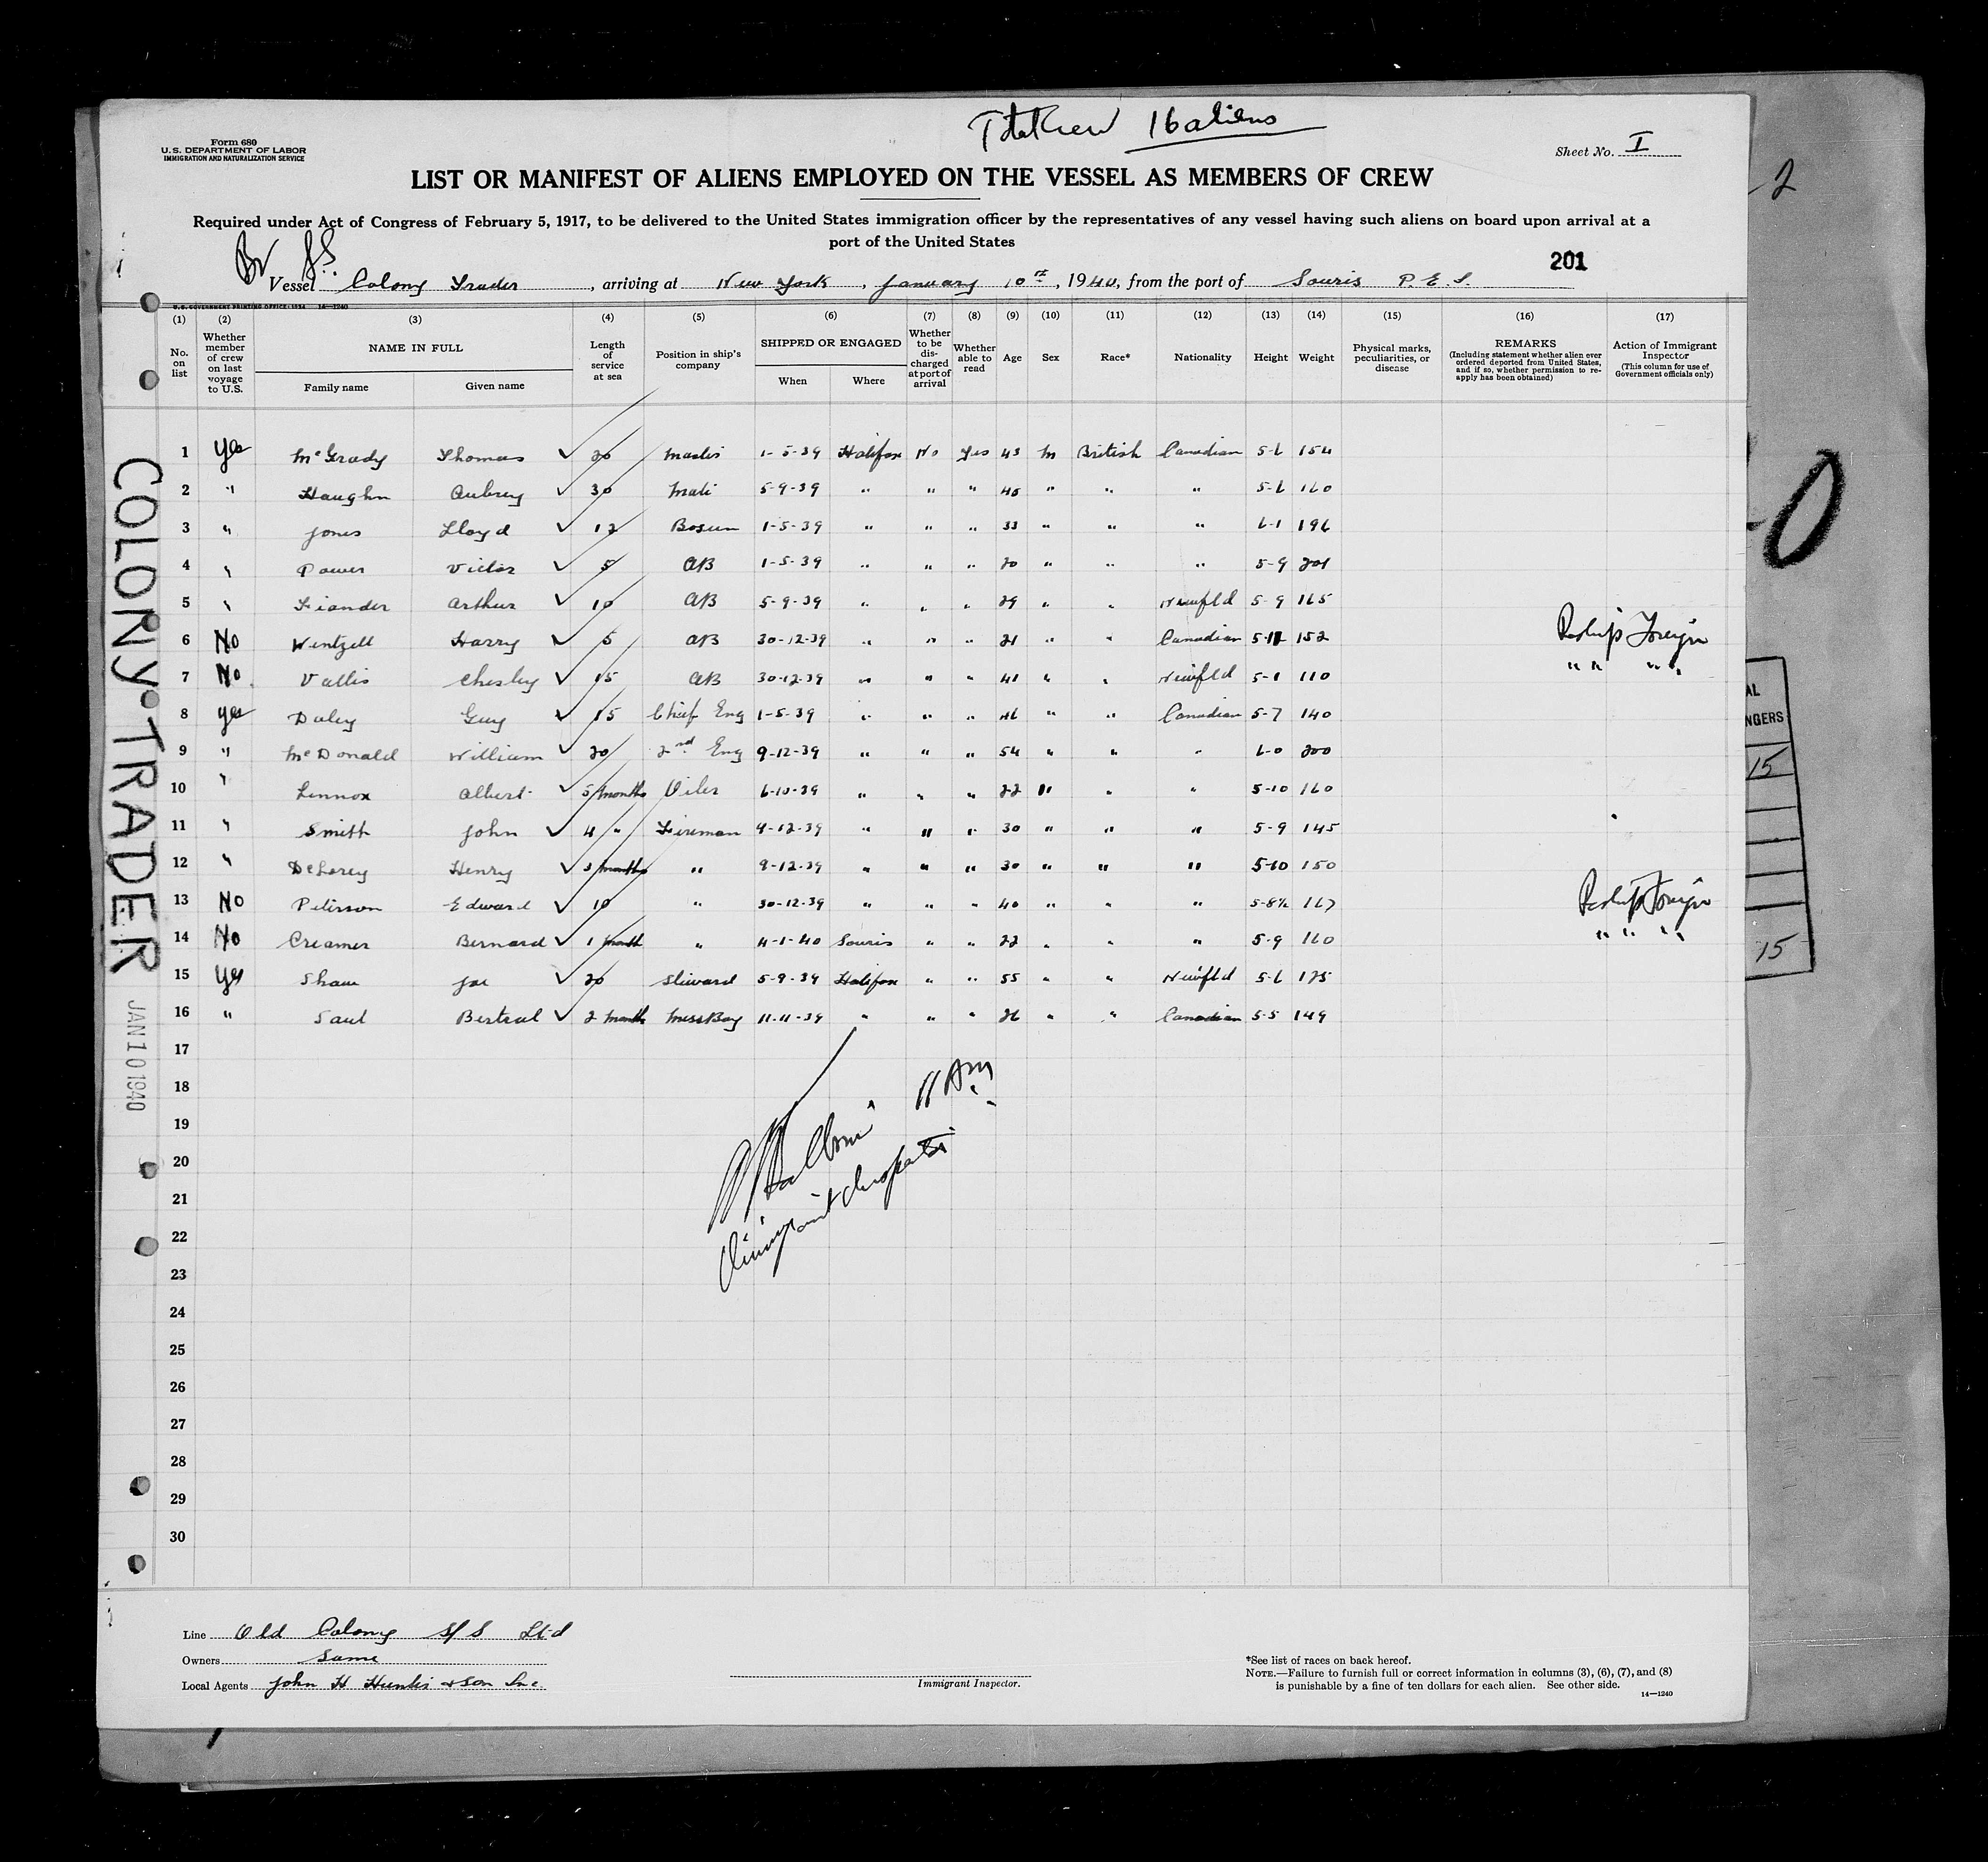 Total Crew 16 aliens
Form 680
U.S. DEPARTMENT OF LABOR
IMMIGRATION AND NATURALIZATION SERVICE
Sheet No. I
LIST OR MANIFEST OF ALIENS EMPLOYED ON THE VESSEL AS MEMBERS OF CREW
Required under Act of Congress of February 5, 1917, to be delivered to the United States immigration officer by the representatives of any vessel having such aliens on board upon arrival at a
port of the United States
201
Br S.S.
Vessel Colony Trader, arriving at New York, January 10th, 1940, from the port of Souris P.E.I.
U.S. GOVERNMENT PRINTING OFFICE: 1934 14—1240
(1) (2) (3) (4) (5) (6) (7) (8) (9) (10) (11) (12) (13) (14) (15) (16) (17)
No. on list
Whether member of crew on last voyage to U.S.
NAME IN FULL
Family name Given name
Length of service at sea
Position in ship's company
SHIPPED OR ENGAGED
When Where
Whether to be discharged at port of arrival
Whether able to read
Age Sex Race* Nationality Height Weight
Physical marks, peculiarities, or disease
REMARKS
(Including statement whether alien ever ordered deported from United States, and if so, whether permission to reapply has been obtained)
Action of Immigrant Inspector
(This column for use of Government officials only)
1 Yes McGrady Thomas ✓ 20 Master 1-5-39 Halifax No Yes 43 M British Canadian 5-6 154
2 " Haughn Aubrey ✓ 30 Mate 5-9-39 " " " 45 " " " 5-6 160
3 " Jones Lloyd ✓ 12 Bosun 1-5-39 " " " 33 " " " 6-1 196
4 " Power Victor ✓ 5 AB 1-5-39 " " " 20 " " " 5-9 201
5 " Fiander Arthur ✓ 10 AB 5-9-39 " " " 29 " " Newfld 5-9 165
6 No Wentzell Harry ✓ 5 AB 30-12-39 " " " 21 " " Canadian 5-11 152 Reship Foreign
7 No Vallis Chesley ✓ 15 AB 30-12-39 " " " 41 " " Newfld 5-1 110 " " " "
8 yes Daley Guy ✓ 15 Chief Eng 1-5-39 " " " 46 " " Canadian 5-7 140
9 " McDonald William ✓ 20 2nd Eng 9-12-39 " " " 54 " " " 6-0 200
10 " Lennox Albert ✓ 5 months Oiler 6-10-39 " " " 22 " " " 5-10 160
11 " Smith John ✓ 4 " Fireman 4-12-39 " " " 30 " " " 5-9 145
12 " DeLorey Henry ✓ 3 months " 9-12-39 " " " 30 " " " 5-10 150
13 No Peterson Edward ✓ 10 " 30-12-39 " " " 40 " " " 5-8½ 167 Reship Foreign
14 No Creamer Bernard ✓ 1 month " 4-1-40 Souris " " 22 " " " 5-9 160 " " " "
15 Yes Shaw Joe ✓ 20 Steward 5-9-39 Halifax " " 55 " " Newfld 5-6 175
16 " Saul Bertral ✓ 2 months MessBoy 11-11-39 " " " 26 " " Canadian 5-5 149
17
18
19
20
21
22
23
24
25
26
27
28
29
30
11 AM
Immigrant Inspector
COLONY TRADER
JAN 10 1940
Line Old Colony S/S Ltd
Owners Same
Local Agents John H Hunter & Son Inc.
Immigrant Inspector.
*See list of races on back hereof.
NOTE.—Failure to furnish full or correct information in columns (3), (6), (7), and (8)
is punishable by a fine of ten dollars for each alien. See other side.
14—1240
2
0
AL
NGERS
15
15